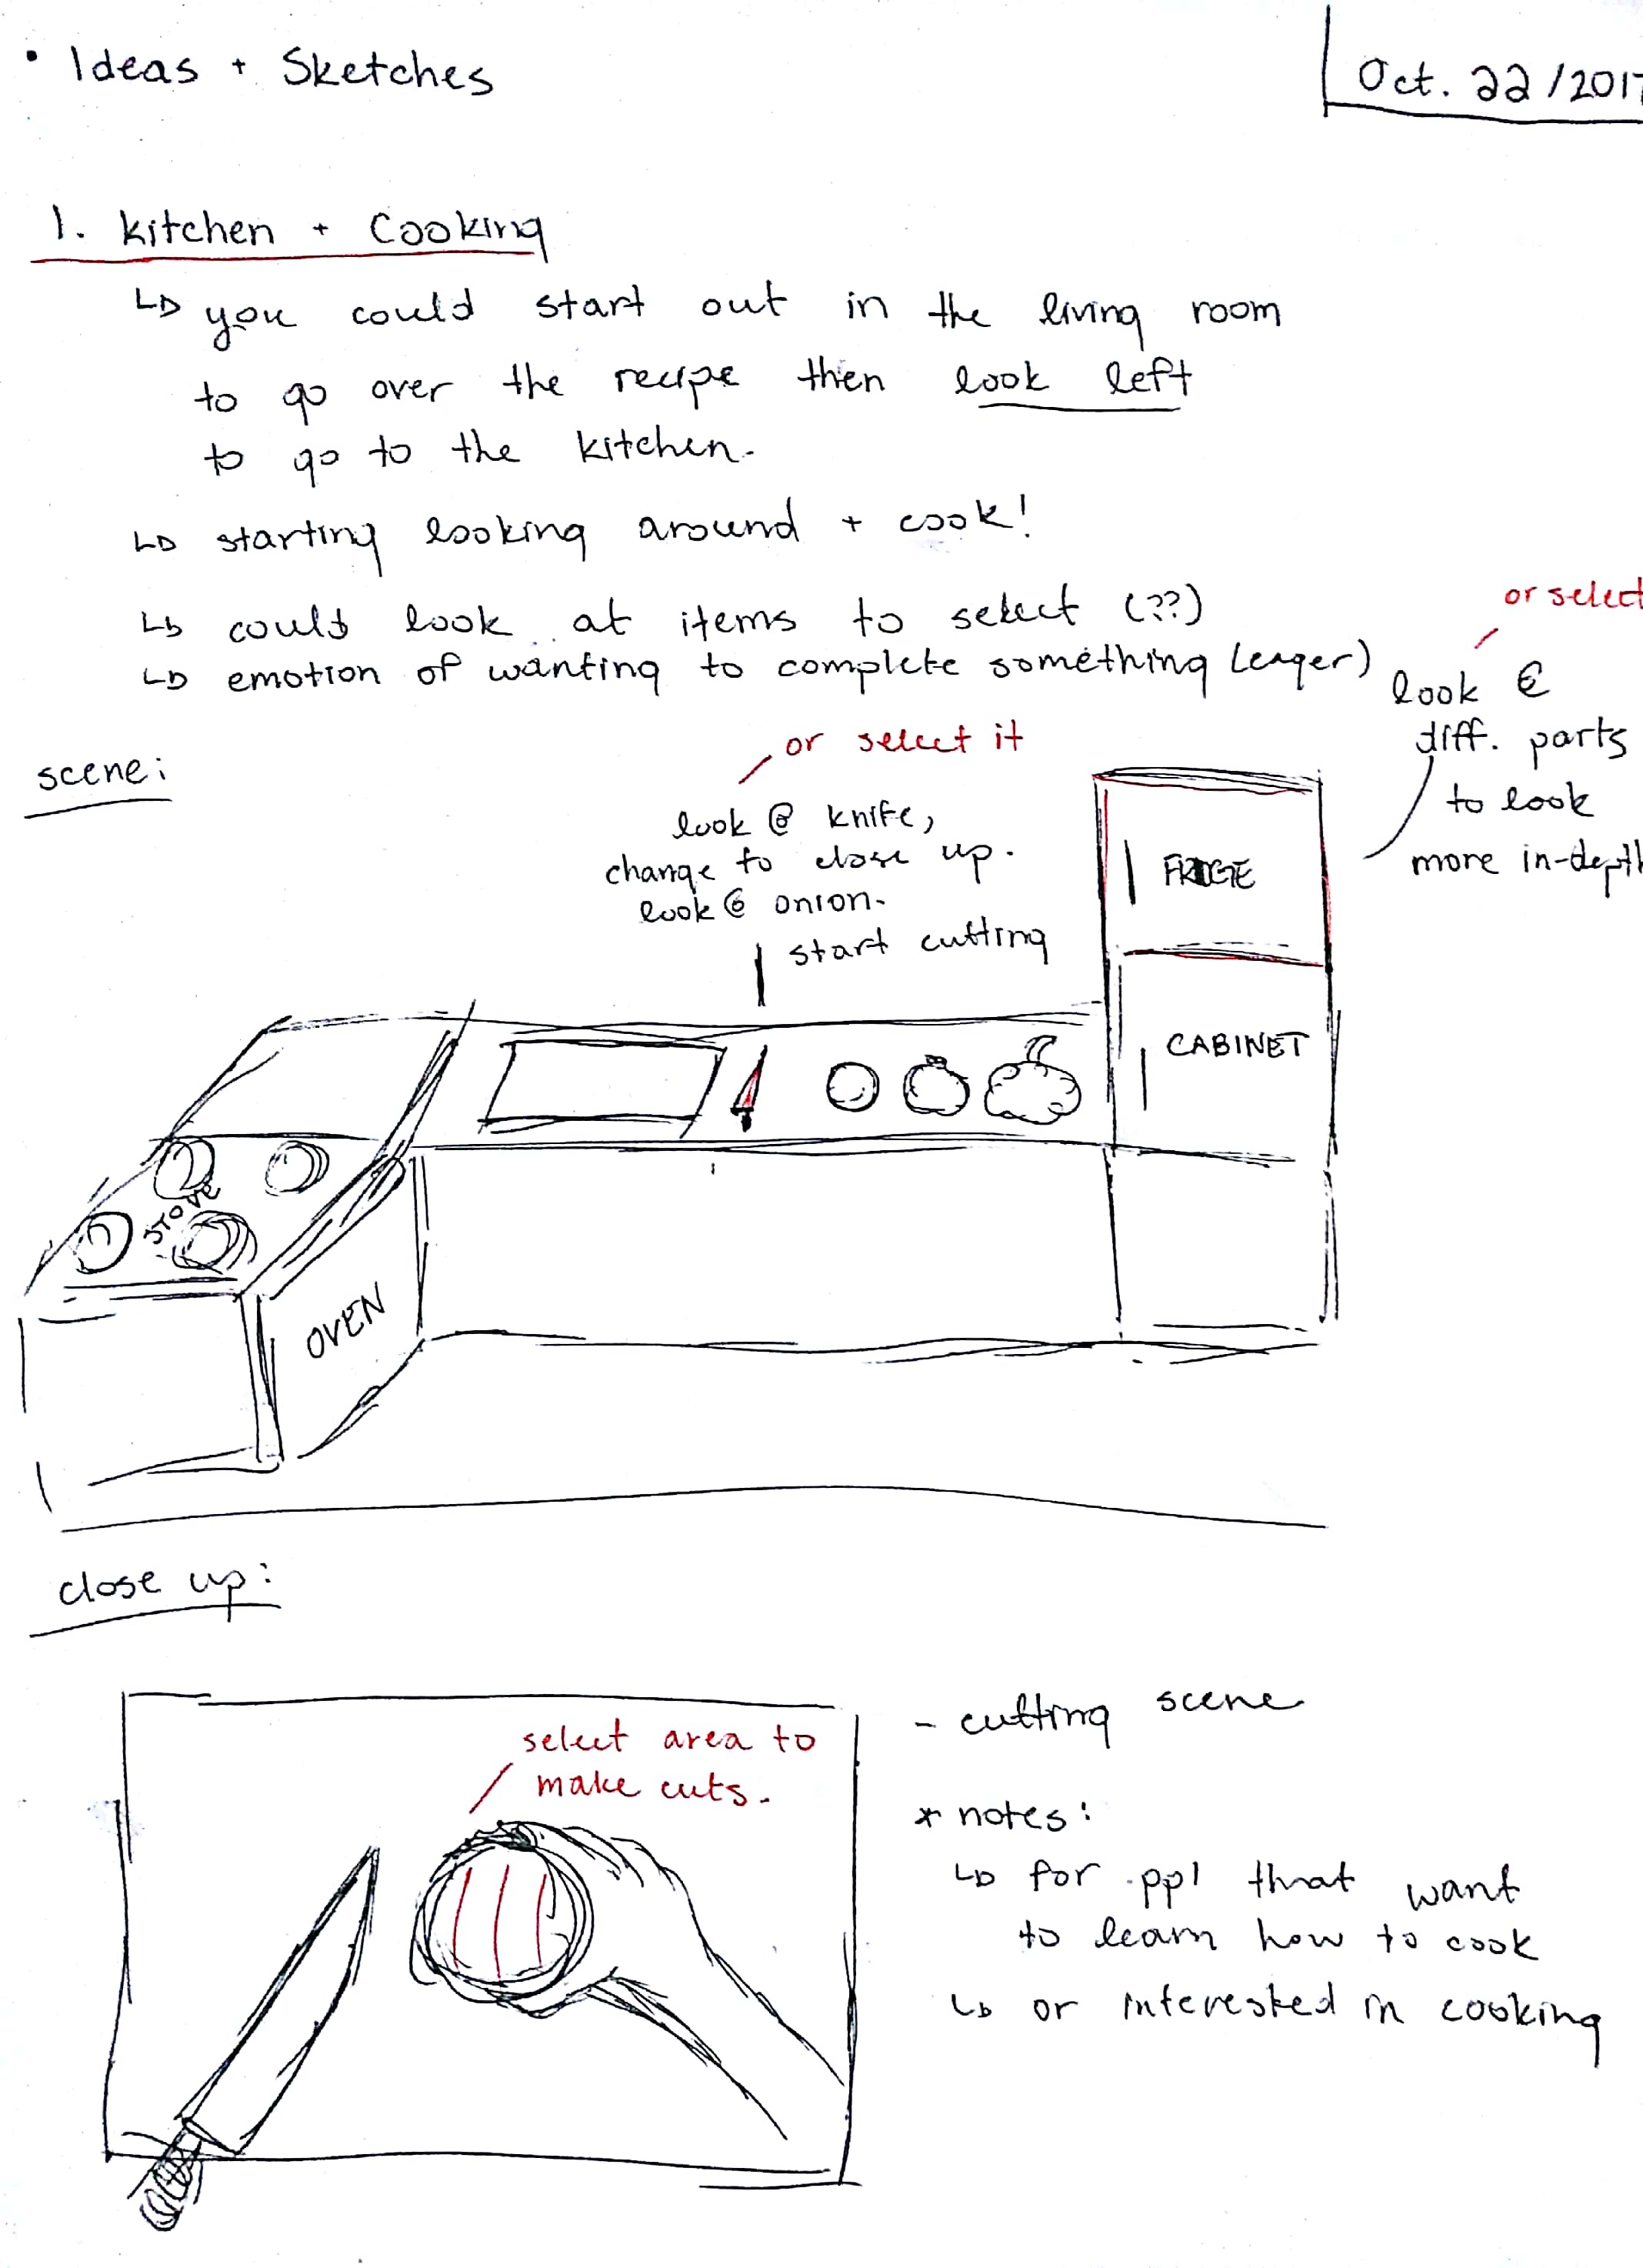 • Ideas + Sketches
Oct. 22/2017
1. Kitchen + Cooking
↳ you could start out in the living room
to go over the recipe then look left
to go to the kitchen.
↳ starting looking around + cook!
↳ could look at items to select (??)
↳ emotion of wanting to complete something (eager)
or select
look @
diff. parts
to look
more in-depth
scene:
or select it
look @ knife,
change to close up.
look @ onion.
start cutting
FRIDGE
CABINET
STOVE
OVEN
close up:
select area to
make cuts.
- cutting scene
* notes:
↳ for ppl that want
to learn how to cook
↳ or interested in cooking